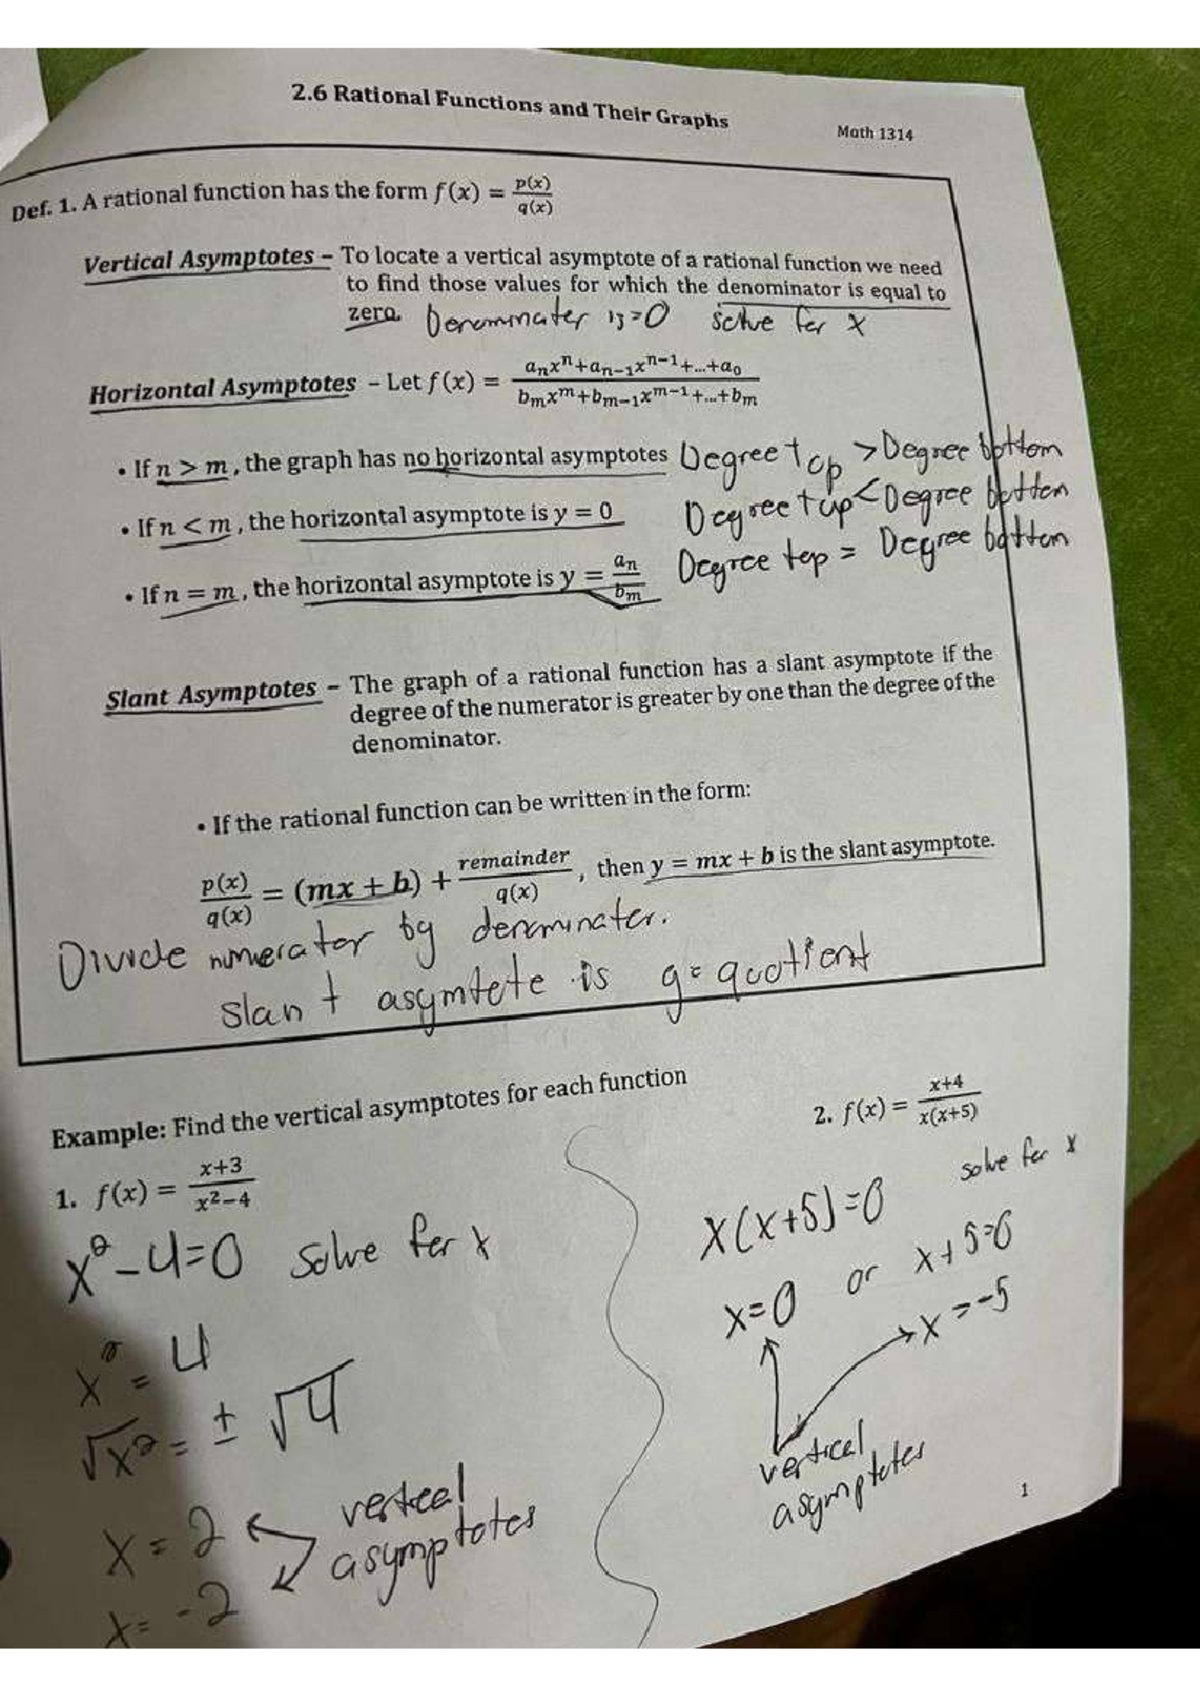 2.6 Rational Functions and Their Graphs
Math 1314
Def. 1. A rational function has the form f(x) = p(x)/q(x)
Vertical Asymptotes – To locate a vertical asymptote of a rational function we need
to find those values for which the denominator is equal to
zero. Denominater is =0 solve for x
Horizontal Asymptotes – Let f(x) = (aₙxⁿ+aₙ₋₁xⁿ⁻¹+...+a₀)/(bₘxᵐ+bₘ₋₁xᵐ⁻¹+...+bₘ)
• If n > m, the graph has no horizontal asymptotes Degree top > Degree bottom
• If n < m, the horizontal asymptote is y = 0 Degree top < Degree bottom
• If n = m, the horizontal asymptote is y = aₙ/bₘ Degree top = Degree bottom
Slant Asymptotes – The graph of a rational function has a slant asymptote if the
degree of the numerator is greater by one than the degree of the
denominator.
• If the rational function can be written in the form:
p(x)/q(x) = (mx + b) + remainder/q(x), then y = mx + b is the slant asymptote.
Divide numerator by denominater.
slant asymtote is y= quotient
Example: Find the vertical asymptotes for each function
1. f(x) = (x+3)/(x²−4)
x²-4=0 solve for x
x² = 4
√x² = ± √4
x = 2 vertical
x = -2 asymptotes
2. f(x) = (x+4)/(x(x+5))
solve for x
x(x+5)=0
x=0 or x+5=0
x=-5
vertical
asymptotes
1